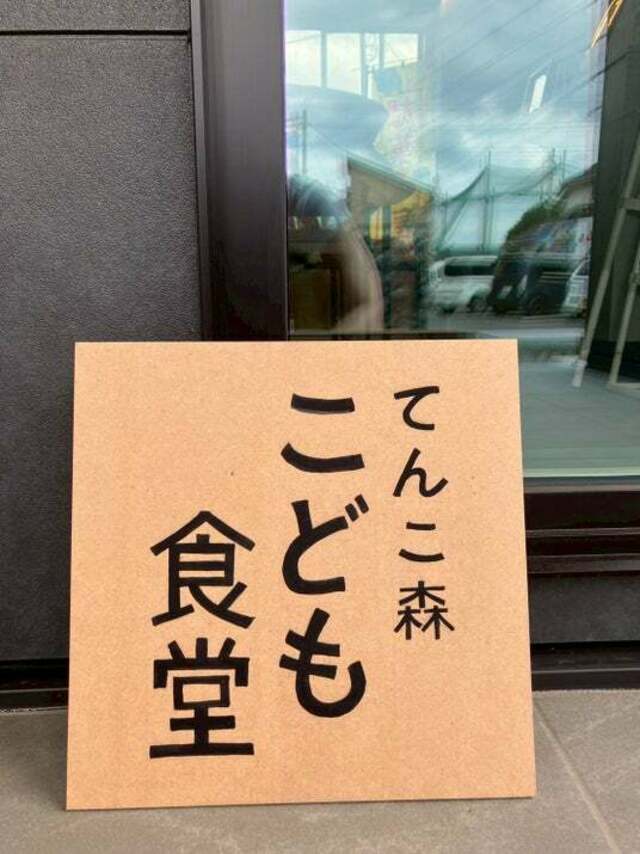 てんこ森
こども
食堂